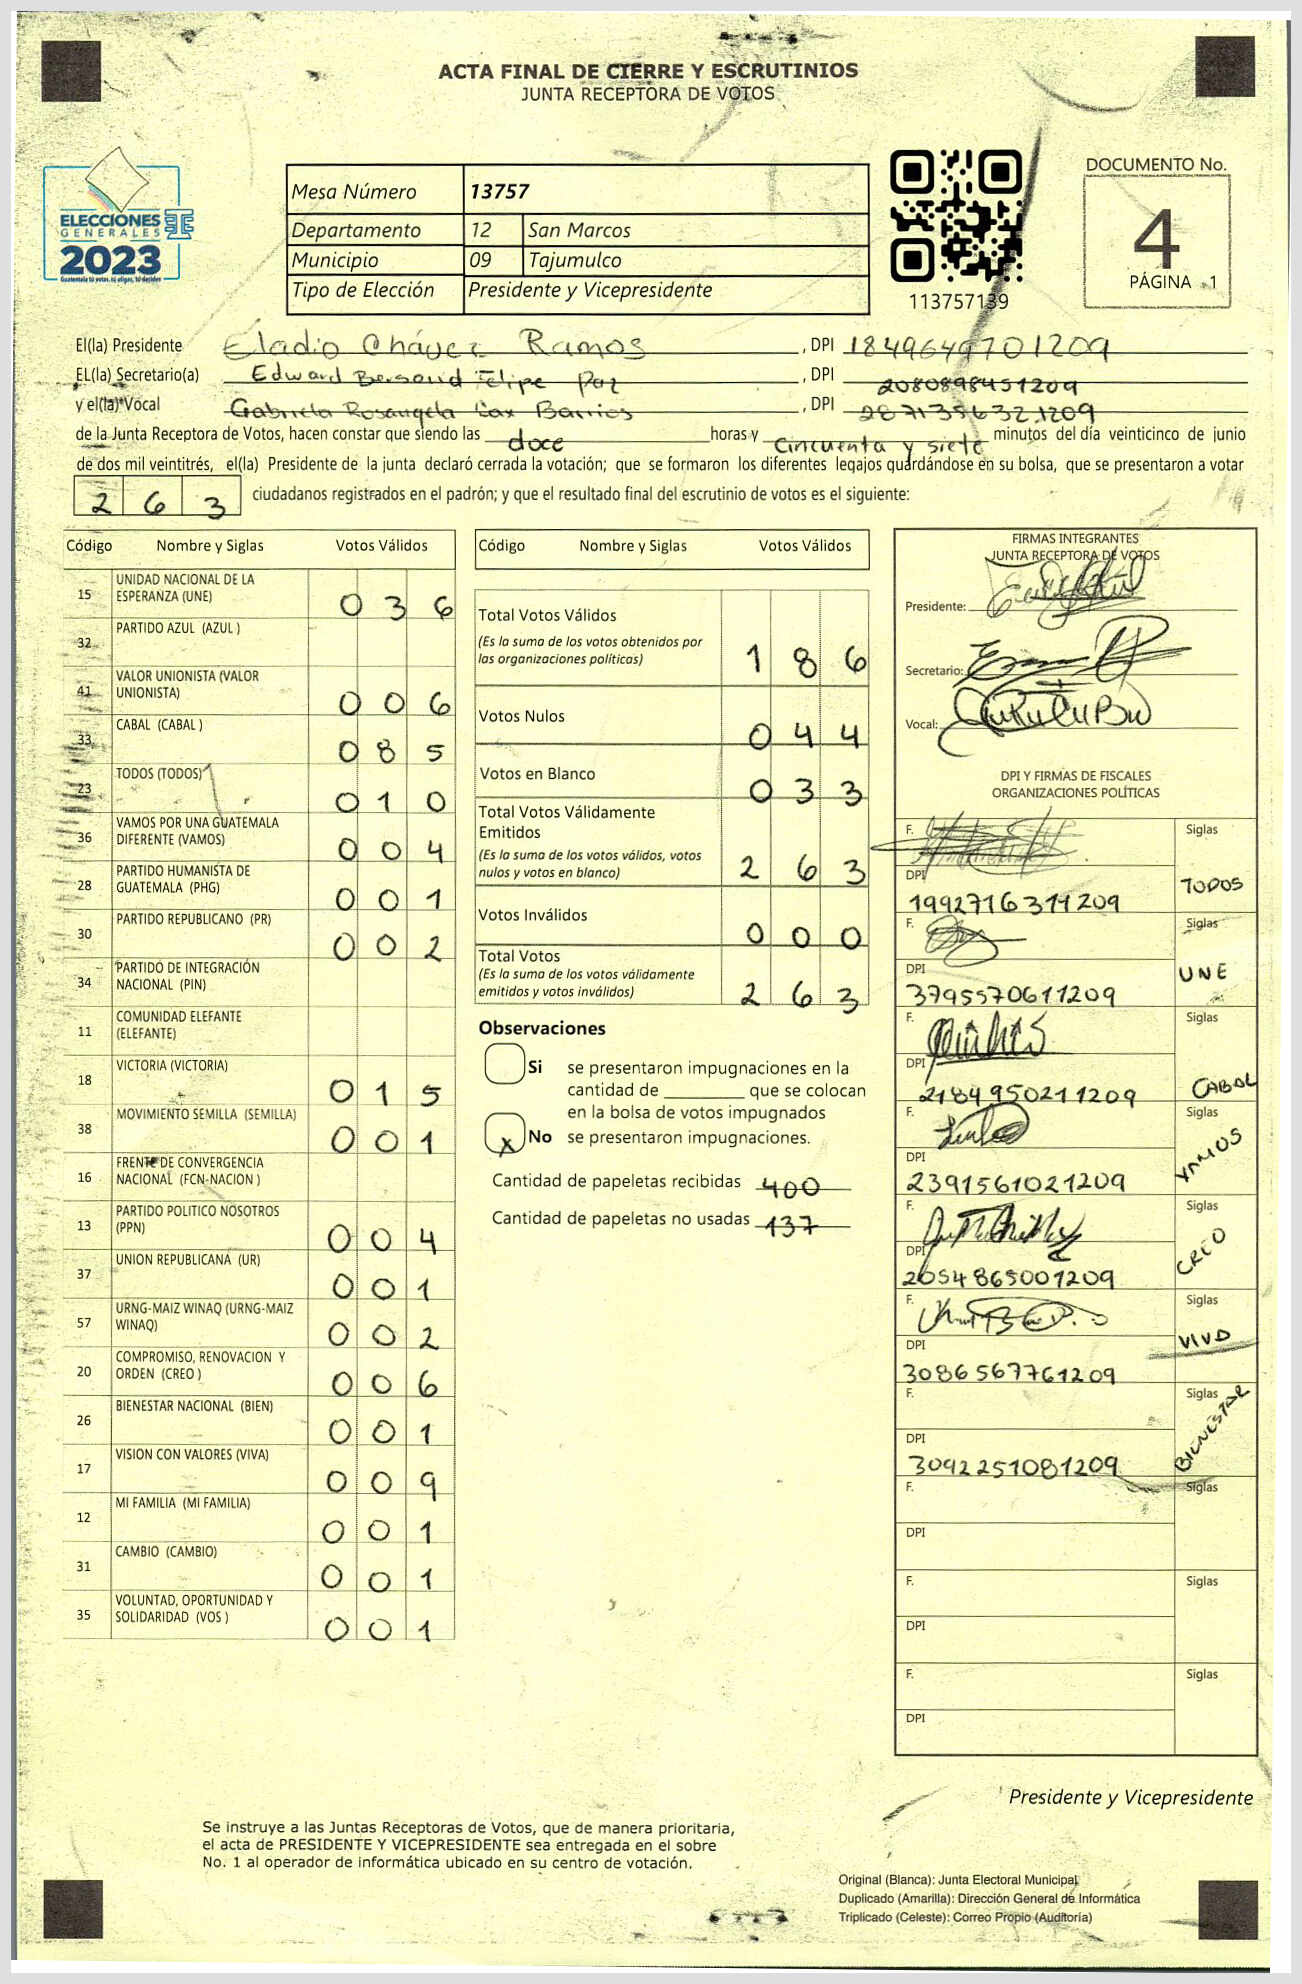 ACTA FINAL DE CIERRE Y ESCRUTINIOS
JUNTA RECEPTORA DE VOTOS
ELECCIONES
GENERALES
2023
Guatemala tú votas, tú eliges, tú decides
Mesa Número 13757
Departamento 12 San Marcos
Municipio 09 Tajumulco
Tipo de Elección Presidente y Vicepresidente
113757139
DOCUMENTO No.
4
PÁGINA 1
El(la) Presidente Eladio Chávez Ramos, DPI 1849649701209
EL(la) Secretario(a) Edward Felipe Paz, DPI 2080898451209
y el(la) Vocal Gabriela Rosangela Barrios, DPI 2871356321209
de la Junta Receptora de Votos, hacen constar que siendo las doce horas y cincuenta y siete minutos del día veinticinco de junio
de dos mil veintitrés, el(la) Presidente de la junta declaró cerrada la votación; que se formaron los diferentes legajos guardándose en su bolsa, que se presentaron a votar
263 ciudadanos registrados en el padrón; y que el resultado final del escrutinio de votos es el siguiente:
Código Nombre y Siglas Votos Válidos
15 UNIDAD NACIONAL DE LA
ESPERANZA (UNE) 036
32 PARTIDO AZUL (AZUL )
41 VALOR UNIONISTA (VALOR
UNIONISTA) 006
33 CABAL (CABAL ) 085
23 TODOS (TODOS) 010
36 VAMOS POR UNA GUATEMALA
DIFERENTE (VAMOS) 004
28 PARTIDO HUMANISTA DE
GUATEMALA (PHG) 001
30 PARTIDO REPUBLICANO (PR) 002
34 PARTIDO DE INTEGRACIÓN
NACIONAL (PIN)
11 COMUNIDAD ELEFANTE
(ELEFANTE)
18 VICTORIA (VICTORIA) 015
38 MOVIMIENTO SEMILLA (SEMILLA) 001
16 FRENTE DE CONVERGENCIA
NACIONAL (FCN-NACION )
13 PARTIDO POLITICO NOSOTROS
(PPN) 004
37 UNION REPUBLICANA (UR) 001
57 URNG-MAIZ WINAQ (URNG-MAIZ
WINAQ) 002
20 COMPROMISO, RENOVACION Y
ORDEN (CREO ) 006
26 BIENESTAR NACIONAL (BIEN) 001
17 VISION CON VALORES (VIVA) 009
12 MI FAMILIA (MI FAMILIA) 001
31 CAMBIO (CAMBIO) 001
35 VOLUNTAD, OPORTUNIDAD Y
SOLIDARIDAD (VOS ) 001
Código Nombre y Siglas Votos Válidos
Total Votos Válidos
(Es la suma de los votos obtenidos por
las organizaciones políticas) 186
Votos Nulos 044
Votos en Blanco 033
Total Votos Válidamente
Emitidos
(Es la suma de los votos válidos, votos
nulos y votos en blanco) 263
Votos Inválidos 000
Total Votos
(Es la suma de los votos válidamente
emitidos y votos inválidos) 263
Observaciones
Si se presentaron impugnaciones en la
cantidad de ________ que se colocan
en la bolsa de votos impugnados
x No se presentaron impugnaciones.
Cantidad de papeletas recibidas 400
Cantidad de papeletas no usadas 137
FIRMAS INTEGRANTES
JUNTA RECEPTORA DE VOTOS
Presidente:
Secretario:
Vocal:
DPI Y FIRMAS DE FISCALES
ORGANIZACIONES POLÍTICAS
F. Siglas
DPI 1992716311209 TODOS
F. Siglas
DPI 3795570611209 UNE
F. Siglas
DPI 2184950211209 CABAL
F. Siglas
DPI 2391561021209 VAMOS
F. Siglas
DPI 2054865001209 CREO
F. Siglas
DPI 3086567761209 VIVA
F. Siglas
DPI 3092251081209 BIENESTAR
F. Siglas
DPI
F. Siglas
DPI
F. Siglas
DPI
Presidente y Vicepresidente
Se instruye a las Juntas Receptoras de Votos, que de manera prioritaria,
el acta de PRESIDENTE Y VICEPRESIDENTE sea entregada en el sobre
No. 1 al operador de informática ubicado en su centro de votación.
Original (Blanca): Junta Electoral Municipal
Duplicado (Amarilla): Dirección General de Informática
Triplicado (Celeste): Correo Propio (Auditoría)